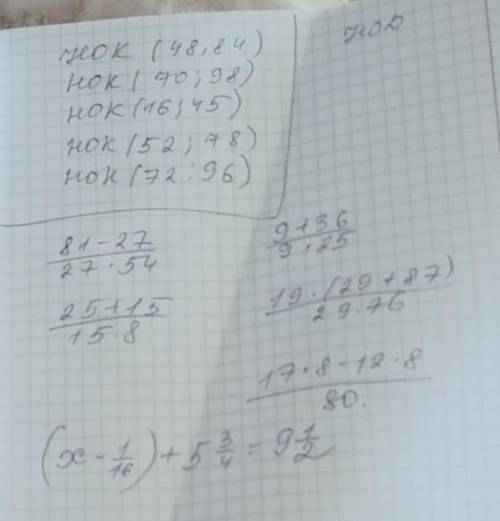 НОК (48; 84)
НОК (70; 98)
НОК (16; 45)
НОК (52; 78)
НОК (72; 96)
НОД
(81 - 27)/(27 · 54)
(9 + 36)/(9 · 25)
(25 + 15)/(15 · 8)
(19 · (29 + 87))/(29 · 76)
(17 · 8 - 12 · 8)/80.
(x - 1/16) + 5 3/4 = 9 1/2